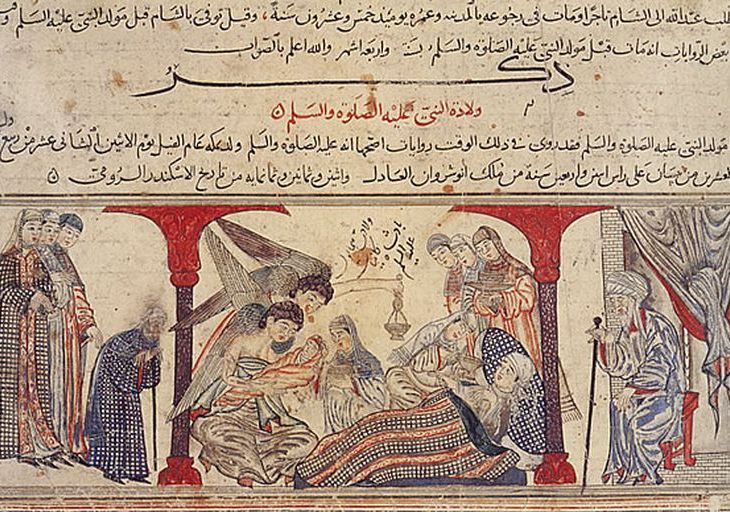 طلب عبدالله الى الشام تاجرا ومات فى رجوعه بالمدينه وعمره يوميذ خمس وعشرون سنة، وقيل توفى بالشام قبل مولد النبى عليه السلم
بعض الروايات انه مات قبل مولد النبى عليه الصلوة والسلم واربعة اشهر والله اعلم بالصواب
ذكر
ولادة النبى عليه الصلوة والسلم
مولد النبى عليه الصلوة والسلم فقد روى فى ذلك الوقت روايات اصحها انه عليه الصلوة والسلم ولد بمكه عام الفيل يوم الاثنين الثانى عشر من ربيع
العشرين من نيسان على راس اثنين واربعين سنة من ملك انوشروان العادل واثنين وثمانين وثمانمايه من تاريخ الاسكندر الرومى
عليه السلم